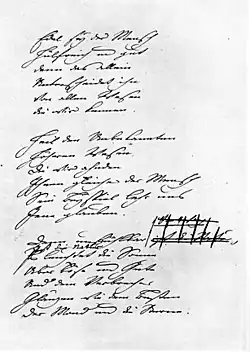 Edel sey der Mensch
Hülfreich und gut
denn das allein
Unterscheidet ihn
Von allen Wesen
die wir kennen.
Heil den Unbekannten
Höhern Wesen
Die wir ahnden
Ihnen gleiche der Mensch
Sein Beyspiel lehr uns
Jene glauben.
Denn unfühlend
Ist die Natur
Es leuchtet die Sonne
Über Böse und Gute
Und dem Verbrecher
Glänzen wie dem Besten
Der Mond und die Sterne.